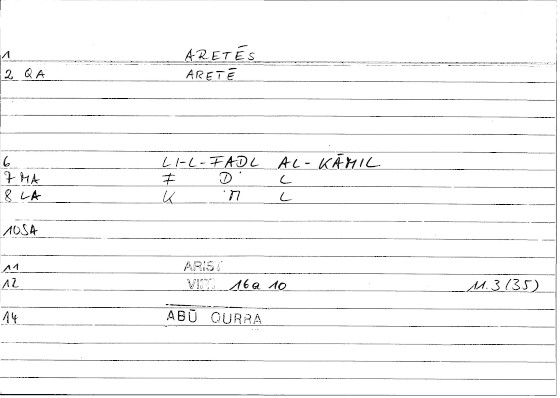 1 ARETĒS
2 QA ARETĒ
6 LI-L-FAḌL AL-KĀMIL
7 MA F Ḍ L
8 LA K M L
10 SA
11 ARIST
12 16a 10 11.3 (35)
14 ABŪ QURRA